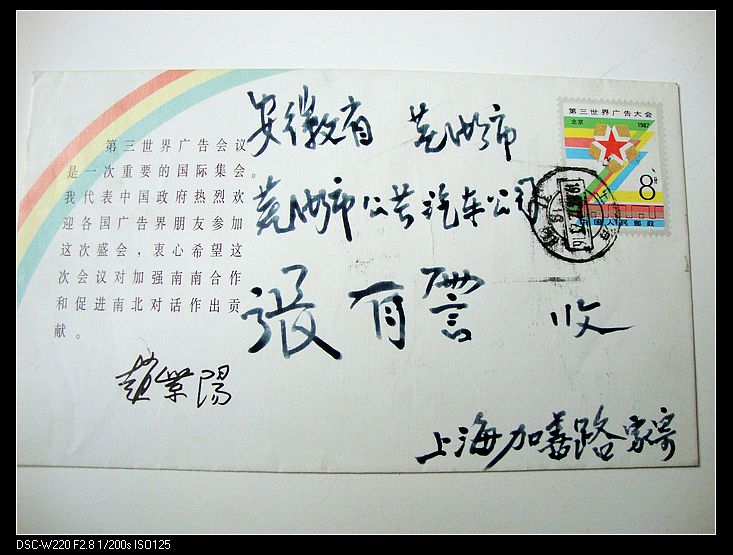 第三世界广告会议
是一次重要的国际集会。
我代表中国政府热烈欢
迎各国广告界朋友参加
这次盛会，衷心希望这
次会议对加强南南合作
和促进南北对话作出贡
献。
赵紫陽
安徽省 芜湖市
芜湖市公共汽车公司
張有譽 收
上海加善路家寄
第三世界广告大会
北京 1987
8分
中国人民邮政
DSC-W220 F2.8 1/200s ISO125